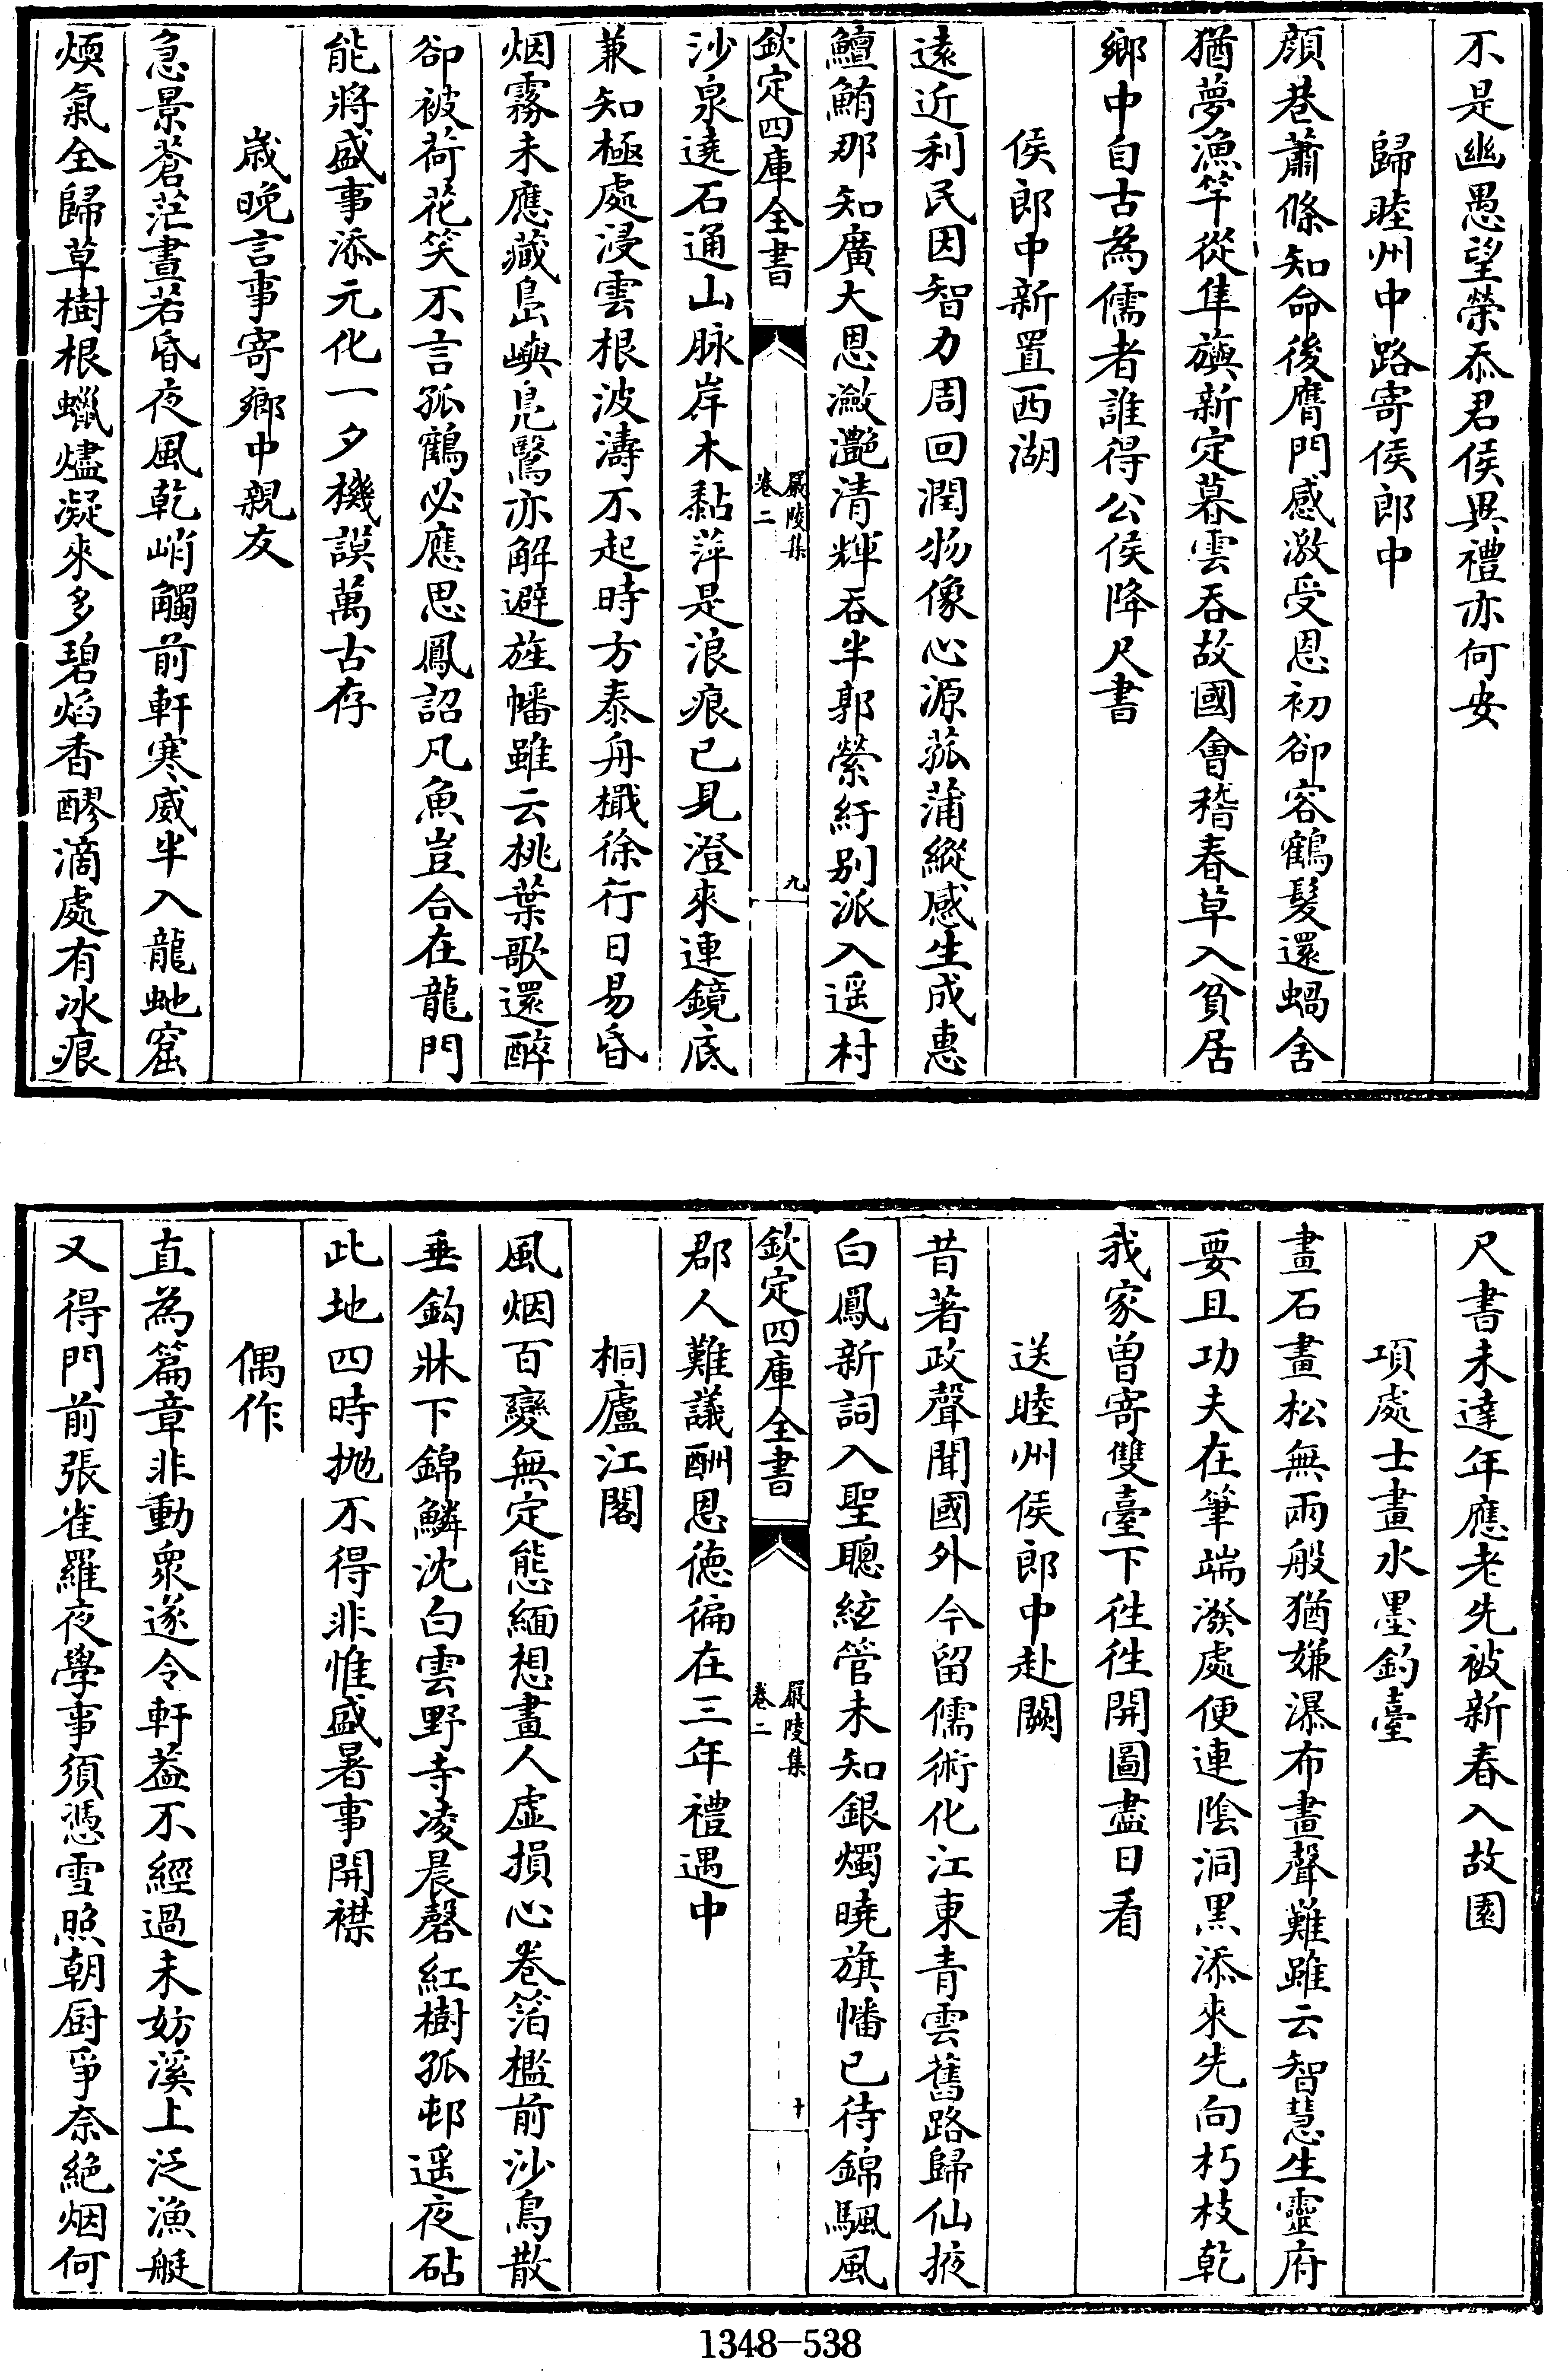 不是幽愚望榮忝君侯異禮亦何安
歸睦州中路寄侯郎中
顔巷蕭條知命後膺門感激受恩初卻容鶴髮還蝸舍
猶夢漁竿從隼旟新定暮雲吞故國會稽春草入貧居
鄉中自古為儒者誰得公侯降尺書
侯郎中新置西湖
遠近利民因智力周回潤物像心源菰蒲縱感生成惠
鱣鮪那知廣大恩瀲灧清輝吞半郭縈紆别派入遥村
欽定四庫全書
嚴陵集
卷二
九
沙泉遶石通山脉岸木黏萍是浪痕已見澄來連鏡底
兼知極處浸雲根波濤不起時方泰舟檝徐行日易昏
烟霧未應藏島嶼鳬鷖亦解避旌幡雖云桃葉歌還醉
卻被荷花笑不言孤鶴必應思鳳詔凡魚豈合在龍門
能將盛事添元化一夕機謨萬古存
歲晚言事寄鄉中親友
急景蒼茫晝若昏夜風乾峭觸前軒寒威半入龍虵窟
煗氣全歸草樹根蠟燼凝來多碧焰香醪滴處有冰痕
尺書未達年應老先被新春入故園
項處士畫水墨釣臺
畫石畫松無兩般猶嫌瀑布畫聲難雖云智慧生靈府
要且功夫在筆端潑處便連陰洞黑添來先向朽枝乾
我家曽寄雙臺下徃徃開圖盡日看
送睦州侯郎中赴闕
昔著政聲聞國外今留儒術化江東青雲舊路歸仙掖
白鳳新詞入聖聰絃管未知銀燭曉旗幡已待錦颿風
欽定四庫全書
嚴陵集
卷二
十
郡人難議酬恩徳徧在三年禮遇中
桐廬江閣
風烟百變無定態緬想畫人虚損心卷箔檻前沙鳥散
垂鈎牀下錦鱗沈白雲野寺凌晨磬紅樹孤邨遥夜砧
此地四時抛不得非惟盛暑事開襟
偶作
直為篇章非動衆遂令軒葢不經過未妨溪上泛漁艇
又得門前張雀羅夜學事須憑雪照朝厨爭奈絶烟何
1348-538